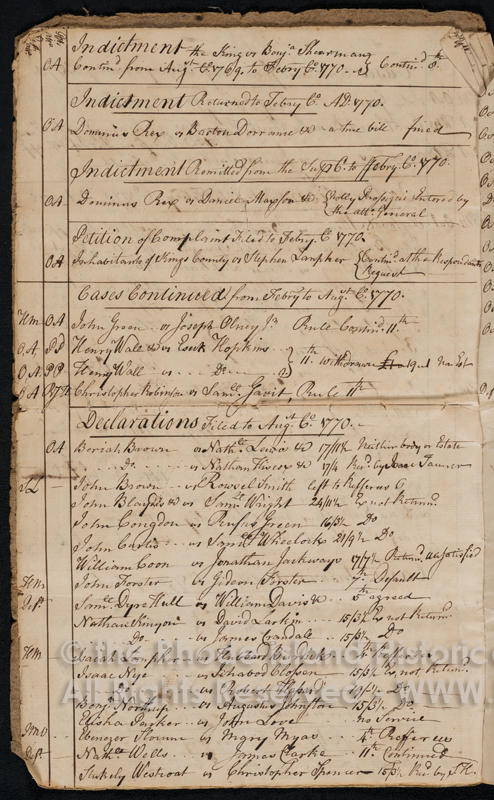 Indictment the King vs Benjn. Shearman
OA Contind. from Augt. Ct. 1769. to Febry Ct. 1770 Continud. &c
Indictment Returned to Febry Ct. AD. 1770.
OA Dominus Rex vs Barton Dorrance &c a true bill fined
Indictment Remitted from the Supr. Ct. to Febry. Ct. 1770.
OA Dominus Rex vs Daniel Maxson &c Nolly Prosequi Entered by
the att. General
Petition of Complaint Filed to Febry. Ct. 1770.
OA Inhabitants of Kings County vs Stephen Lanpher Continud. at the Respondants
Request
Cases Continued from Febry to Augt. Ct. 1770.
HM OA John Green vs Joseph Olney Jr. Rule Continud. 11th
OA PD Henry Wall &c vs Esek Hopkins
11th withdrawn
OA PP Henry Wall vs Do
OA Christopher Robinson vs Saml. Rule 11th
Declarations Filed to Augt. Ct. 1770.
OA Beriah Brown vs Nathl. Lewis &c 17/11½ Neither body or Estate
Do vs Nathan &c 17/4 by Isaac
John Brown vs Rowsel Smith left to Refferus 6
John &c vs Saml. Wright 24/11½ Ex not Returnd.
John Congdon vs Rufus Green 16/5½ Do
John Curtis vs Wheelock 21/9½ Do
William Coon vs Jonathan Jackways 17/7½ Return. unsatisfied
HM John Forster vs Gideon Forster 7th Default
Saml. Dyre Hull vs William Davis &c 5th agreed
Nathan Kinyon vs David Larkin 15/5½ Ex not Return
Do vs James Crandale 15/5½ Do
HM Lanpher vs
Isaac Nye vs Ichabod Clossen 15/5½ Ex not Return.
Do vs Robert Do
Benj. Northup vs Augustus Johnston 15/5½ Do
Elisha Parker vs John Love no Service
Ebenezer vs Mary 4th Refferees
Nathl. Wells vs James Clarke 11th Continued
Stukely Westcoat vs Christopher Spencer 15/5½ by
© The Rhode Island Historical
All Rights Reserved WWW